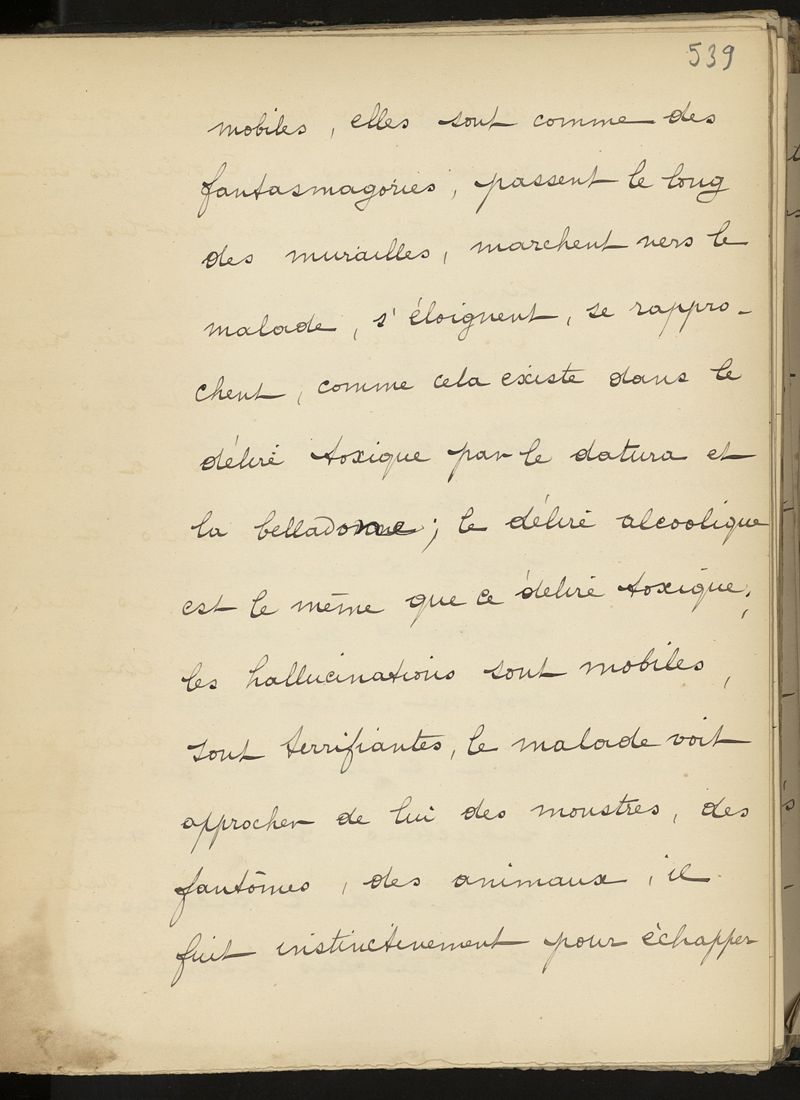 539
mobiles, elles sont comme des
fantasmagories, passent le long
des murailles, marchent vers le
malade, s'éloignent, se rappro-
chent, comme cela existe dans le
délire toxique par le datura et
la belladone; le délire alcoolique
est le même que ce délire toxique;
les hallucinations sont mobiles,
sont terrifiantes, le malade voit
approcher de lui des monstres, des
fantômes, des animaux, il
fuit instinctivement pour échapper